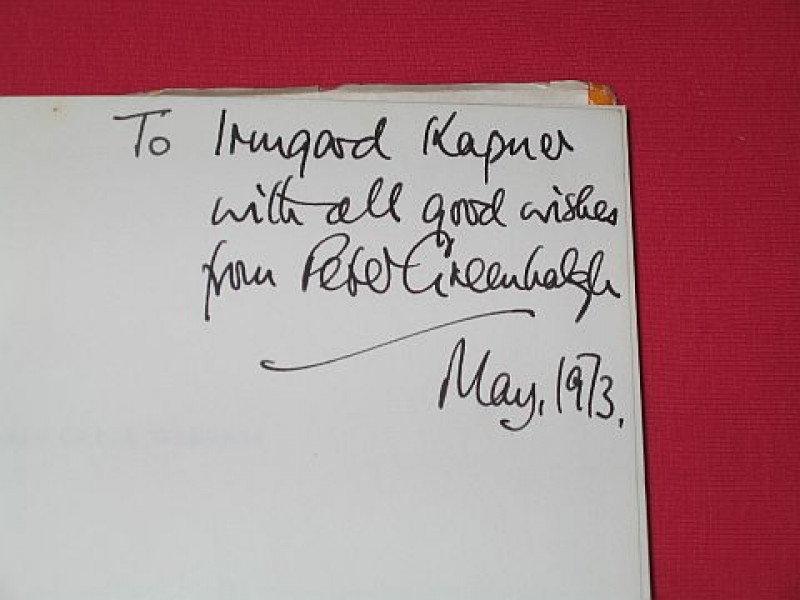 To Irmgard Kapner
with all good wishes
from Peter Greenhalgh
May, 1973.